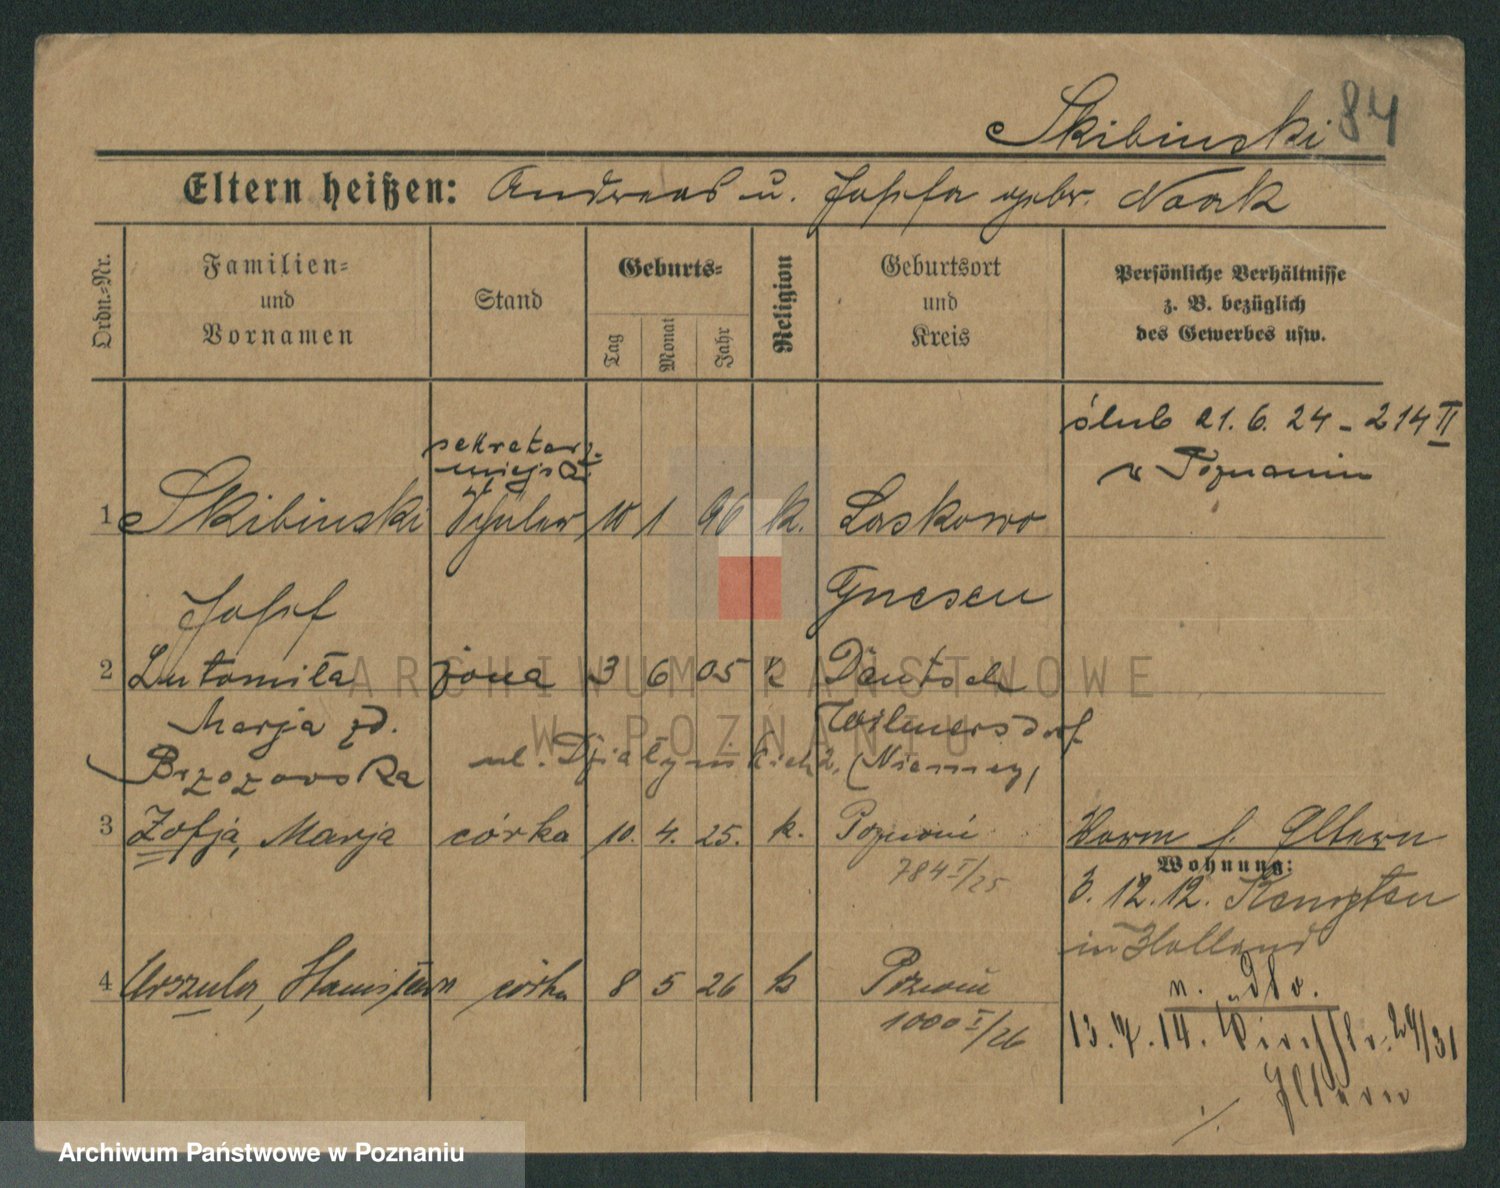 Skibinski 84
Eltern heißen: Andreas u. Josefa gebr. Noak
Ordn.-Nr.
Familien-
und
Vornamen
Stand
Geburts-
Tag
Monat
Jahr
Religion
Geburtsort
und
Kreis
Persönliche Verhältnisse
z. B. bezüglich
des Gewerbes usw.
ślub 21.6.24 - 214 II
w Poznaniu
sekretarz
miejsk.
1 Skibinski Schüler 10 1 96 k. Laskowo
Josef Gnesen
2 Lutomiła żona 3 6 05 k Deutsch
Marja zd. Wilmersdorf
Brzozowska ul. Działyńskich 2, (Niemcy)
3 Zofja, Marja córka 10. 4. 25. k. Poznań
784 I/25
Worm s. Eltern
Wohnung:
3.12.12. Kempten
in Holland
4 Urszula, Stanisława córka 8 5 26 k Poznań
1000 I/26
n. üdbv.
13.7.14. 24/31
Eltern
ARCHIWUM PAŃSTWOWE
W POZNANIU
Archiwum Państwowe w Poznaniu